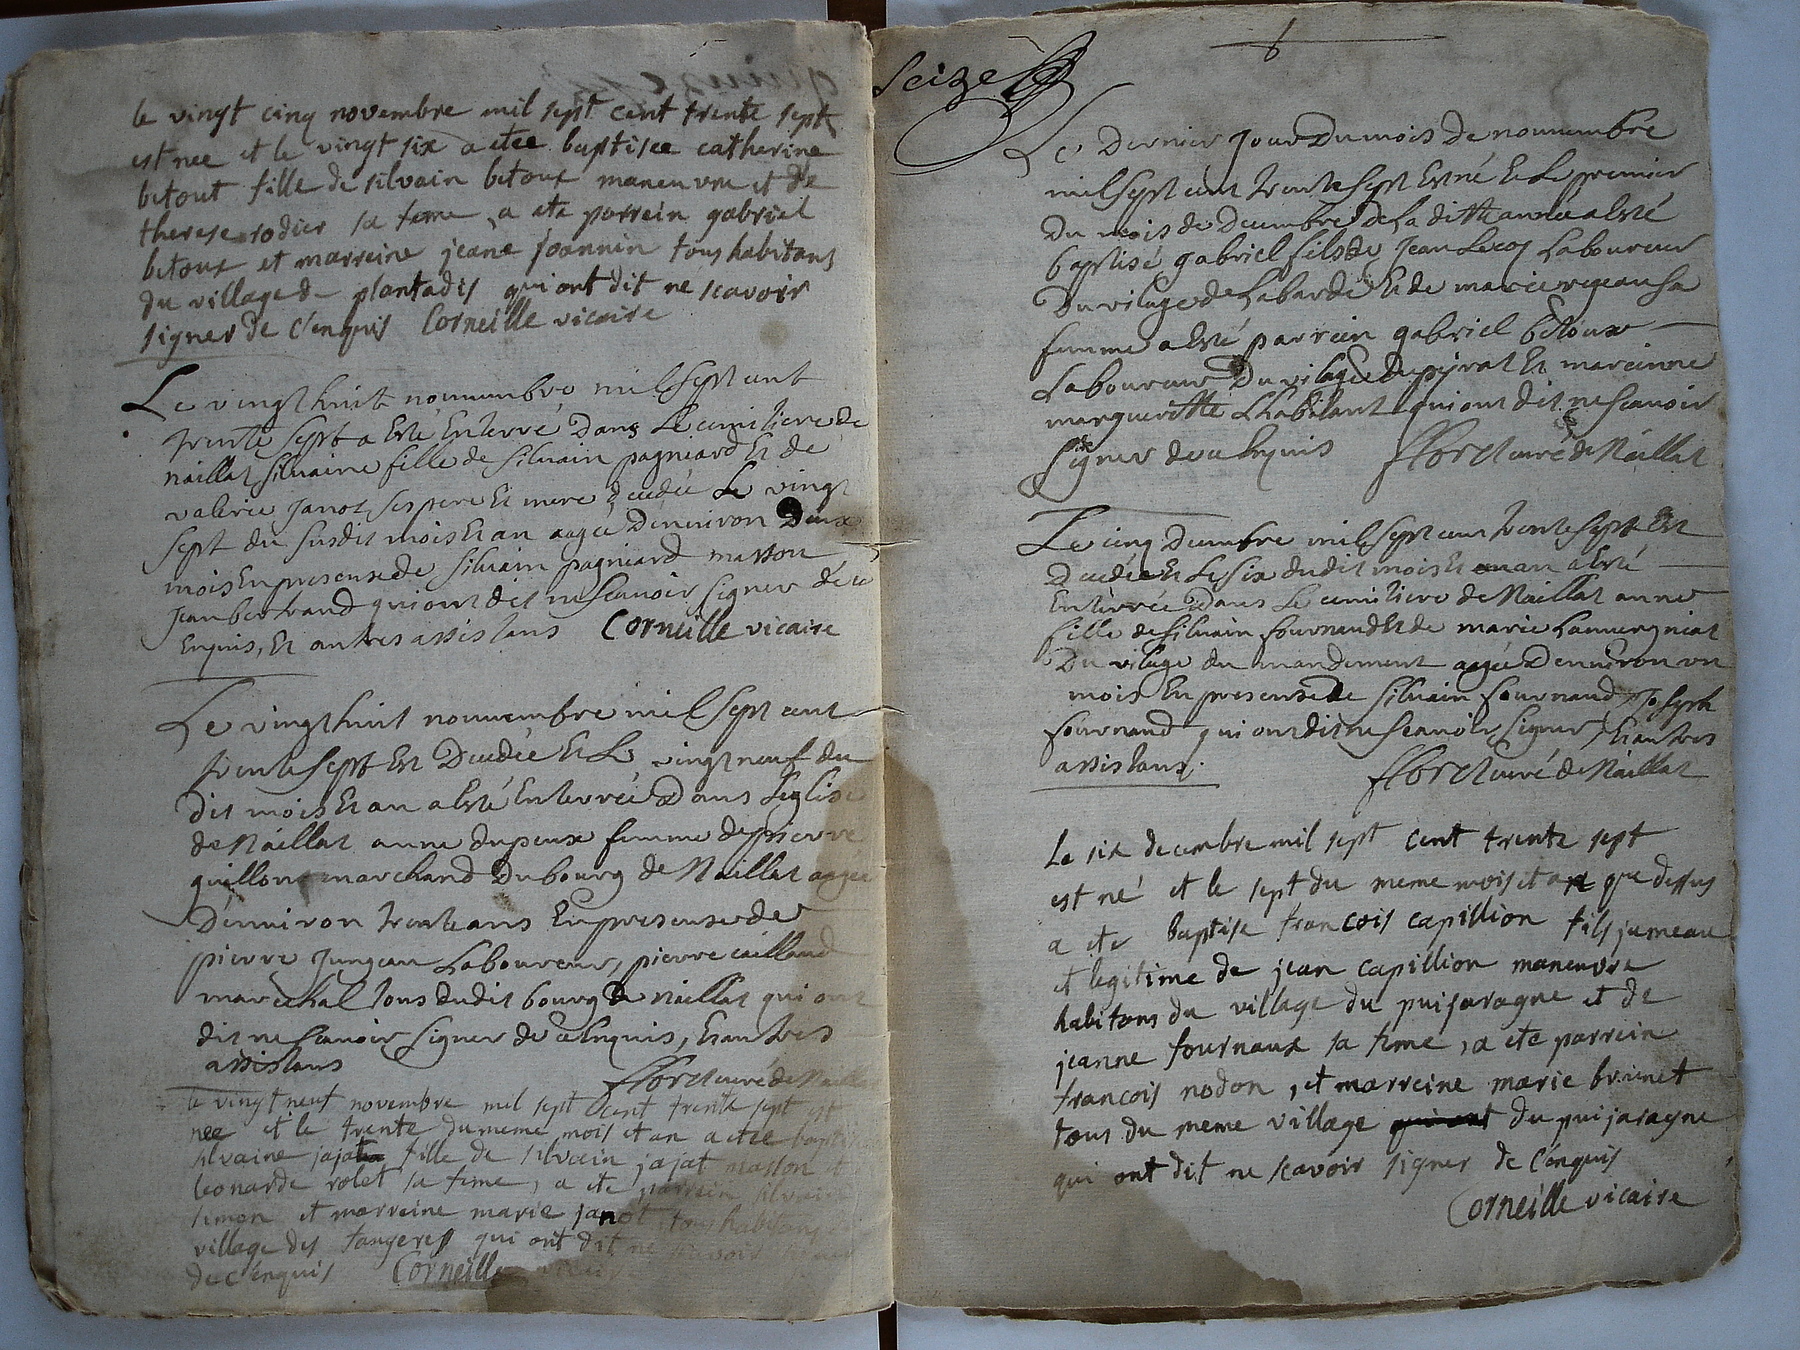 le vingt cinq novembre mil sept cent trente sept
est nee et le vingt six a etee baptisee catherine
betout fille de silvain betoux maneuvre et de
therese rodier sa feme, a ete parrein gabriel
betoux et marreine jeane joannin tous habitans
du village de plantadis qui ont dit ne scavoir
signer de c'enquis Corneille vicaire
Le vingt huit nouuembre mil sept cent
trente sept a esté enterré dans le cemitiere de
naillat silvaine fille de silvain pagniard et de
valerie janot ses pere et mere decedée le vingt
sept du susdit mois et an aagée d'enuiron deux
mois en presense de silvain pagniard masson
jean bertrand qui ont dit ne scauoir signer de ce
enquis, et autres assistans Corneille vicaire
Le vingt huit nouuembre mil sept cent
trente sept est decedée et le vingt neuf du
dit mois et an a esté enterrée dans l'eglise
de Naillat anne dupeux femme de pierre
guillon marchand du bourg de Naillat aagée
d'enuiron trente ans en presense de
pierre laboureur, pierre caillaud
marechal tous dudit bourg de naillat qui ont
dit ne scauoir signer de ce enquis, et autres
assistans
fforet curé de Naillat
le vingt neuf novembre mil sept cent trente sept est
nee et le trente du meme mois et an a etee baptisee
silvaine jajat fille de silvain jajat masson et
leonarde rolet sa feme, a ete parrein silvain
simon et marreine marie janot, tous habitans
village des fougeres qui ont dit ne scavoir signer
de c'enquis Corneille vicaire
Seize
6
Le dernier jour du mois de nouuembre
mil sept cent trente sept est né et le premier
du mois de decembre de la ditte année a esté
baptisé gabriel fils de jean Lecoq laboureur
du vilage de labarde et de marie sa
femme a esté parrein gabriel betoux
laboureur du vilage du peyrat et mareinne
margueritte qui ont dit ne scauoir
signer de ce enquis fforet curé de Naillat
Le cinq decembre mil sept cent trente sept est
decedée et le six dudit mois et an a esté
enterrée dans le cemitiere de Naillat anne
fille de silvain fournaud et de marie lauuergniat
du vilage du mandement aagée d'enuiron un
mois en presense de silvain fournaud, joseph
fournaud qui ont dit ne scauoir signer, et autres
assistans.
fforet curé de Naillat
Le six decembre mil sept cent trente sept
est né et le sept du meme mois et an que dessus
a ete baptise francois capillion fils jumeau
et legitime de jean capillion maneuvre
habitans du village du puijaragne et de
jeanne fournaux sa feme, a ete parrein
francois nodon, et marreine marie brunet
tous du meme village qui ont du puijaragne
qui ont dit ne scavoir signer de c'enquis
Corneille vicaire